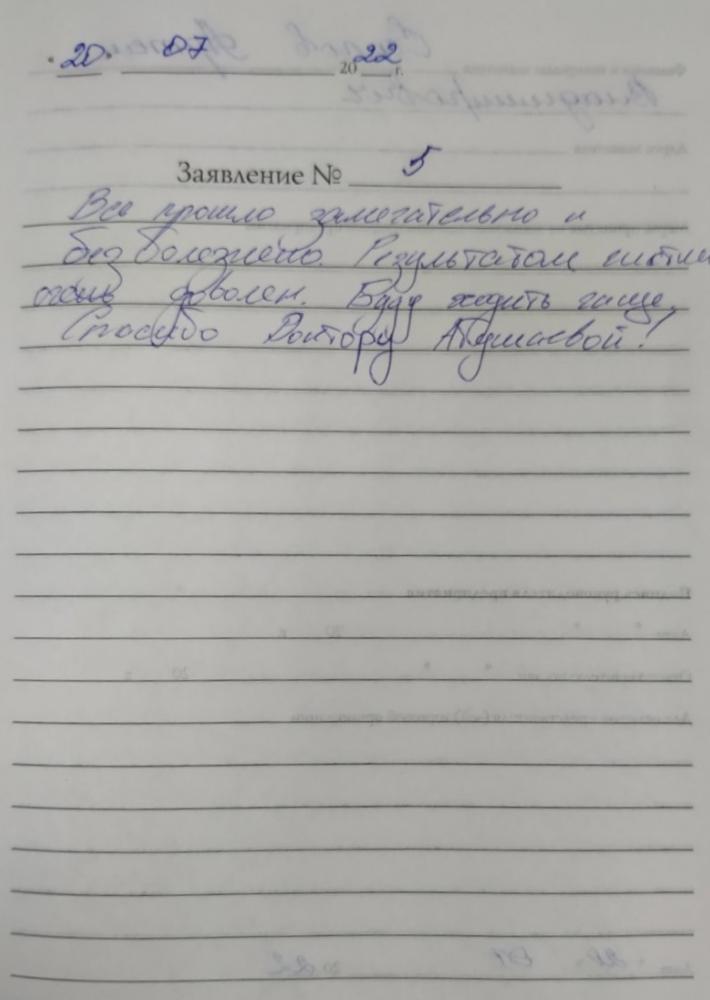 "20" 07 2022 г.
Заявление № 5
Все прошло замечательно и
безболезнено. Результатом
очень доволен. Буду ходить чаще.
Спасибо Доктору